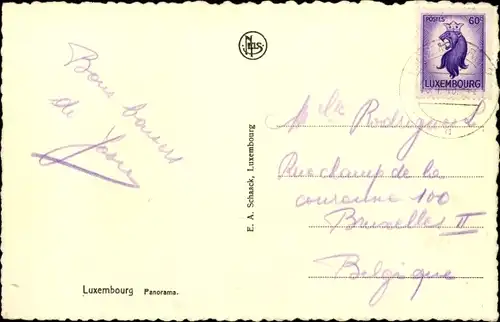 Bons baisers
de
NELS
POSTES 60c
LUXEMBOURG
E. A. Schaack, Luxembourg
Rue champ de la
couronne 100
Bruxelles II
Belgique
Luxembourg Panorama.